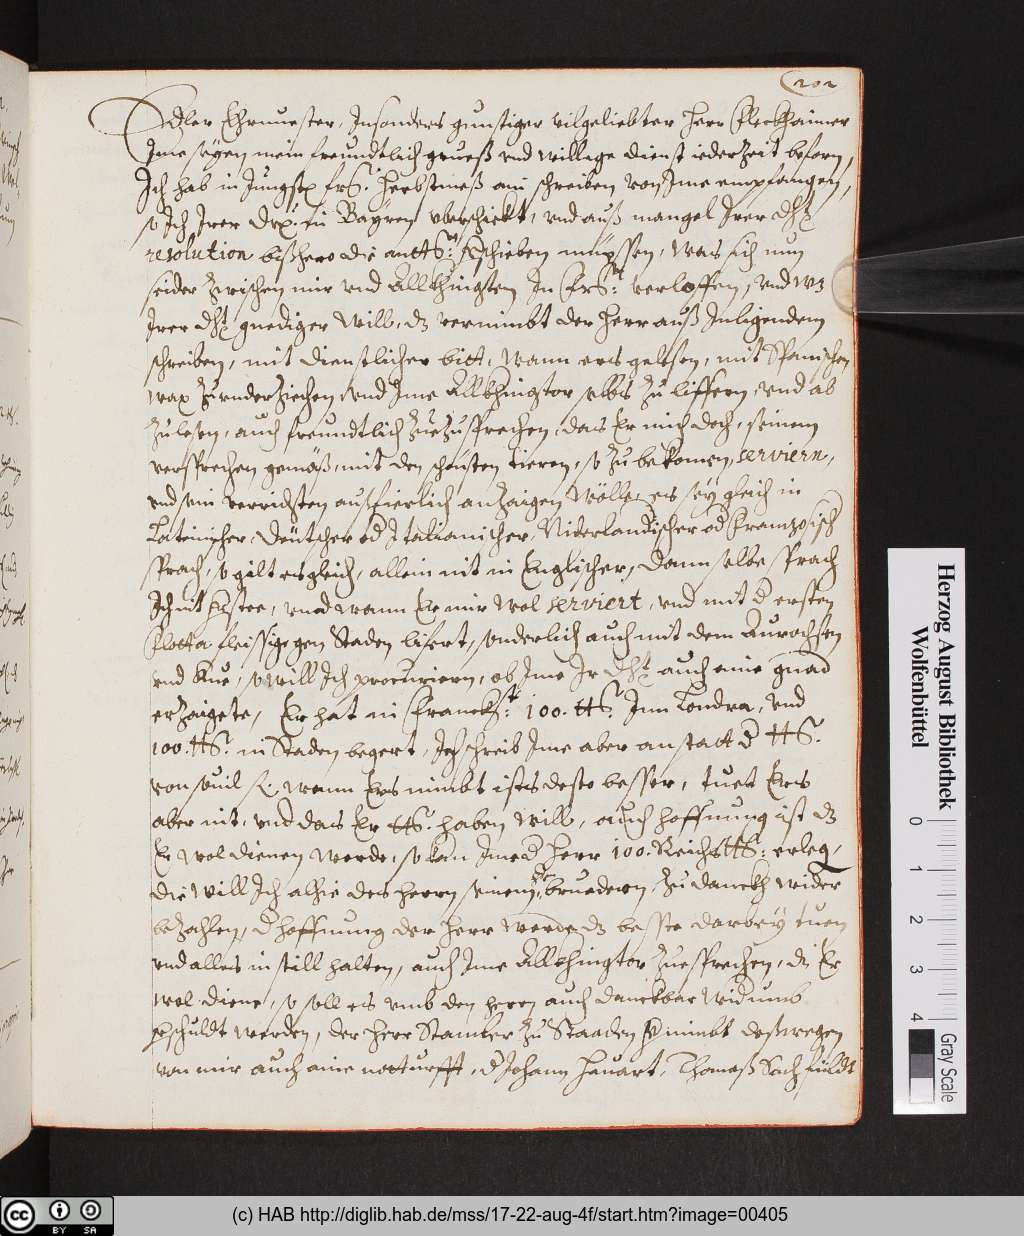 202
Edler Ehrnuester, Insonders gunstiger vilgeliebter Herr Fleckhaimer
Ime seyen mein freundtlich grueß vnd willige dienst iederzeit beforn,
Ich hab in Jungster herbstmeß ain schreiben von Ime empfangen,
so Ich Irer in Bayren vberschickt, vnd auß mangel Irer Dht
resolution bißhero die antt verschieben müessen, was sich nun
seider zwischen mir vnd Allkhingsten In verloffen, vnd wz
Irer Dht gnediger will, dz vernimbt der Herr auß Inligendem
schreiben, mit dienstlicher bitt, wann ers gelesen, mit Spanischen
wax zu vnderziechen vnd Ime Allkhingstor selbs zu liffern, vnd ab
zulesen, auch freundtlich zuezusprechen, das Er mich doch, seinem
versprechen gemäß, mit den schensten tieren, so zu bekomen, serviern,
vnd sein verrichten ausfierlich anzaigen wölle, es sey gleich in
Lateinischer, Deutscher od Italianischer, Niderlandischer od Franzosisch
sprach, so gilt es gleich, allein nit in Englischer, dann selbe sprach
Ich nit, vnnd wann Er mir wol serviert, vnd mit d ersten
Flotta fleissig gegen Staden lifert, sonderlich auch mit dem Aurochsen
vnd Kue, so will Ich procuriern, ob Ime Ir Dht auch eine gnad
erzaigete, Er hat in Franckf.t 100. ttS. Inn Londra, vnd
100. ttS. in Staden begert, Ich schreib Ime aber anstatt d ttS.
von souil f. wann Ers nimbt ists desto besser, tuet Ers
aber nit, vnd das Er ttS. haben will, auch hoffnung ist dz
Er wol dienen werde, so kan Ime d Herr 100. Reichs ttS: erleg,
die will Ich alhie des herrn seinem bruedern, zu danckh wider
bezahlen, d hoffnung der Herr werde dz beste darbey tuen
vnd alles in still halten, auch Ime Allkhingstor zuesprechen, dz Er
wol diene, so soll es vmb den herrn auch danckbar widumb
verschuldt werden, der Herr Stamler zu Staaden vernimbt deßwegen
von mir auch aine notturfft, d Johann Hauart, Thomaß Sachsfüldt
Herzog August Bibliothek
Wolfenbüttel
0 1 2 3 4
Gray Scale
cc BY SA
(c) HAB http://diglib.hab.de/mss/17-22-aug-4f/start.htm?image=00405